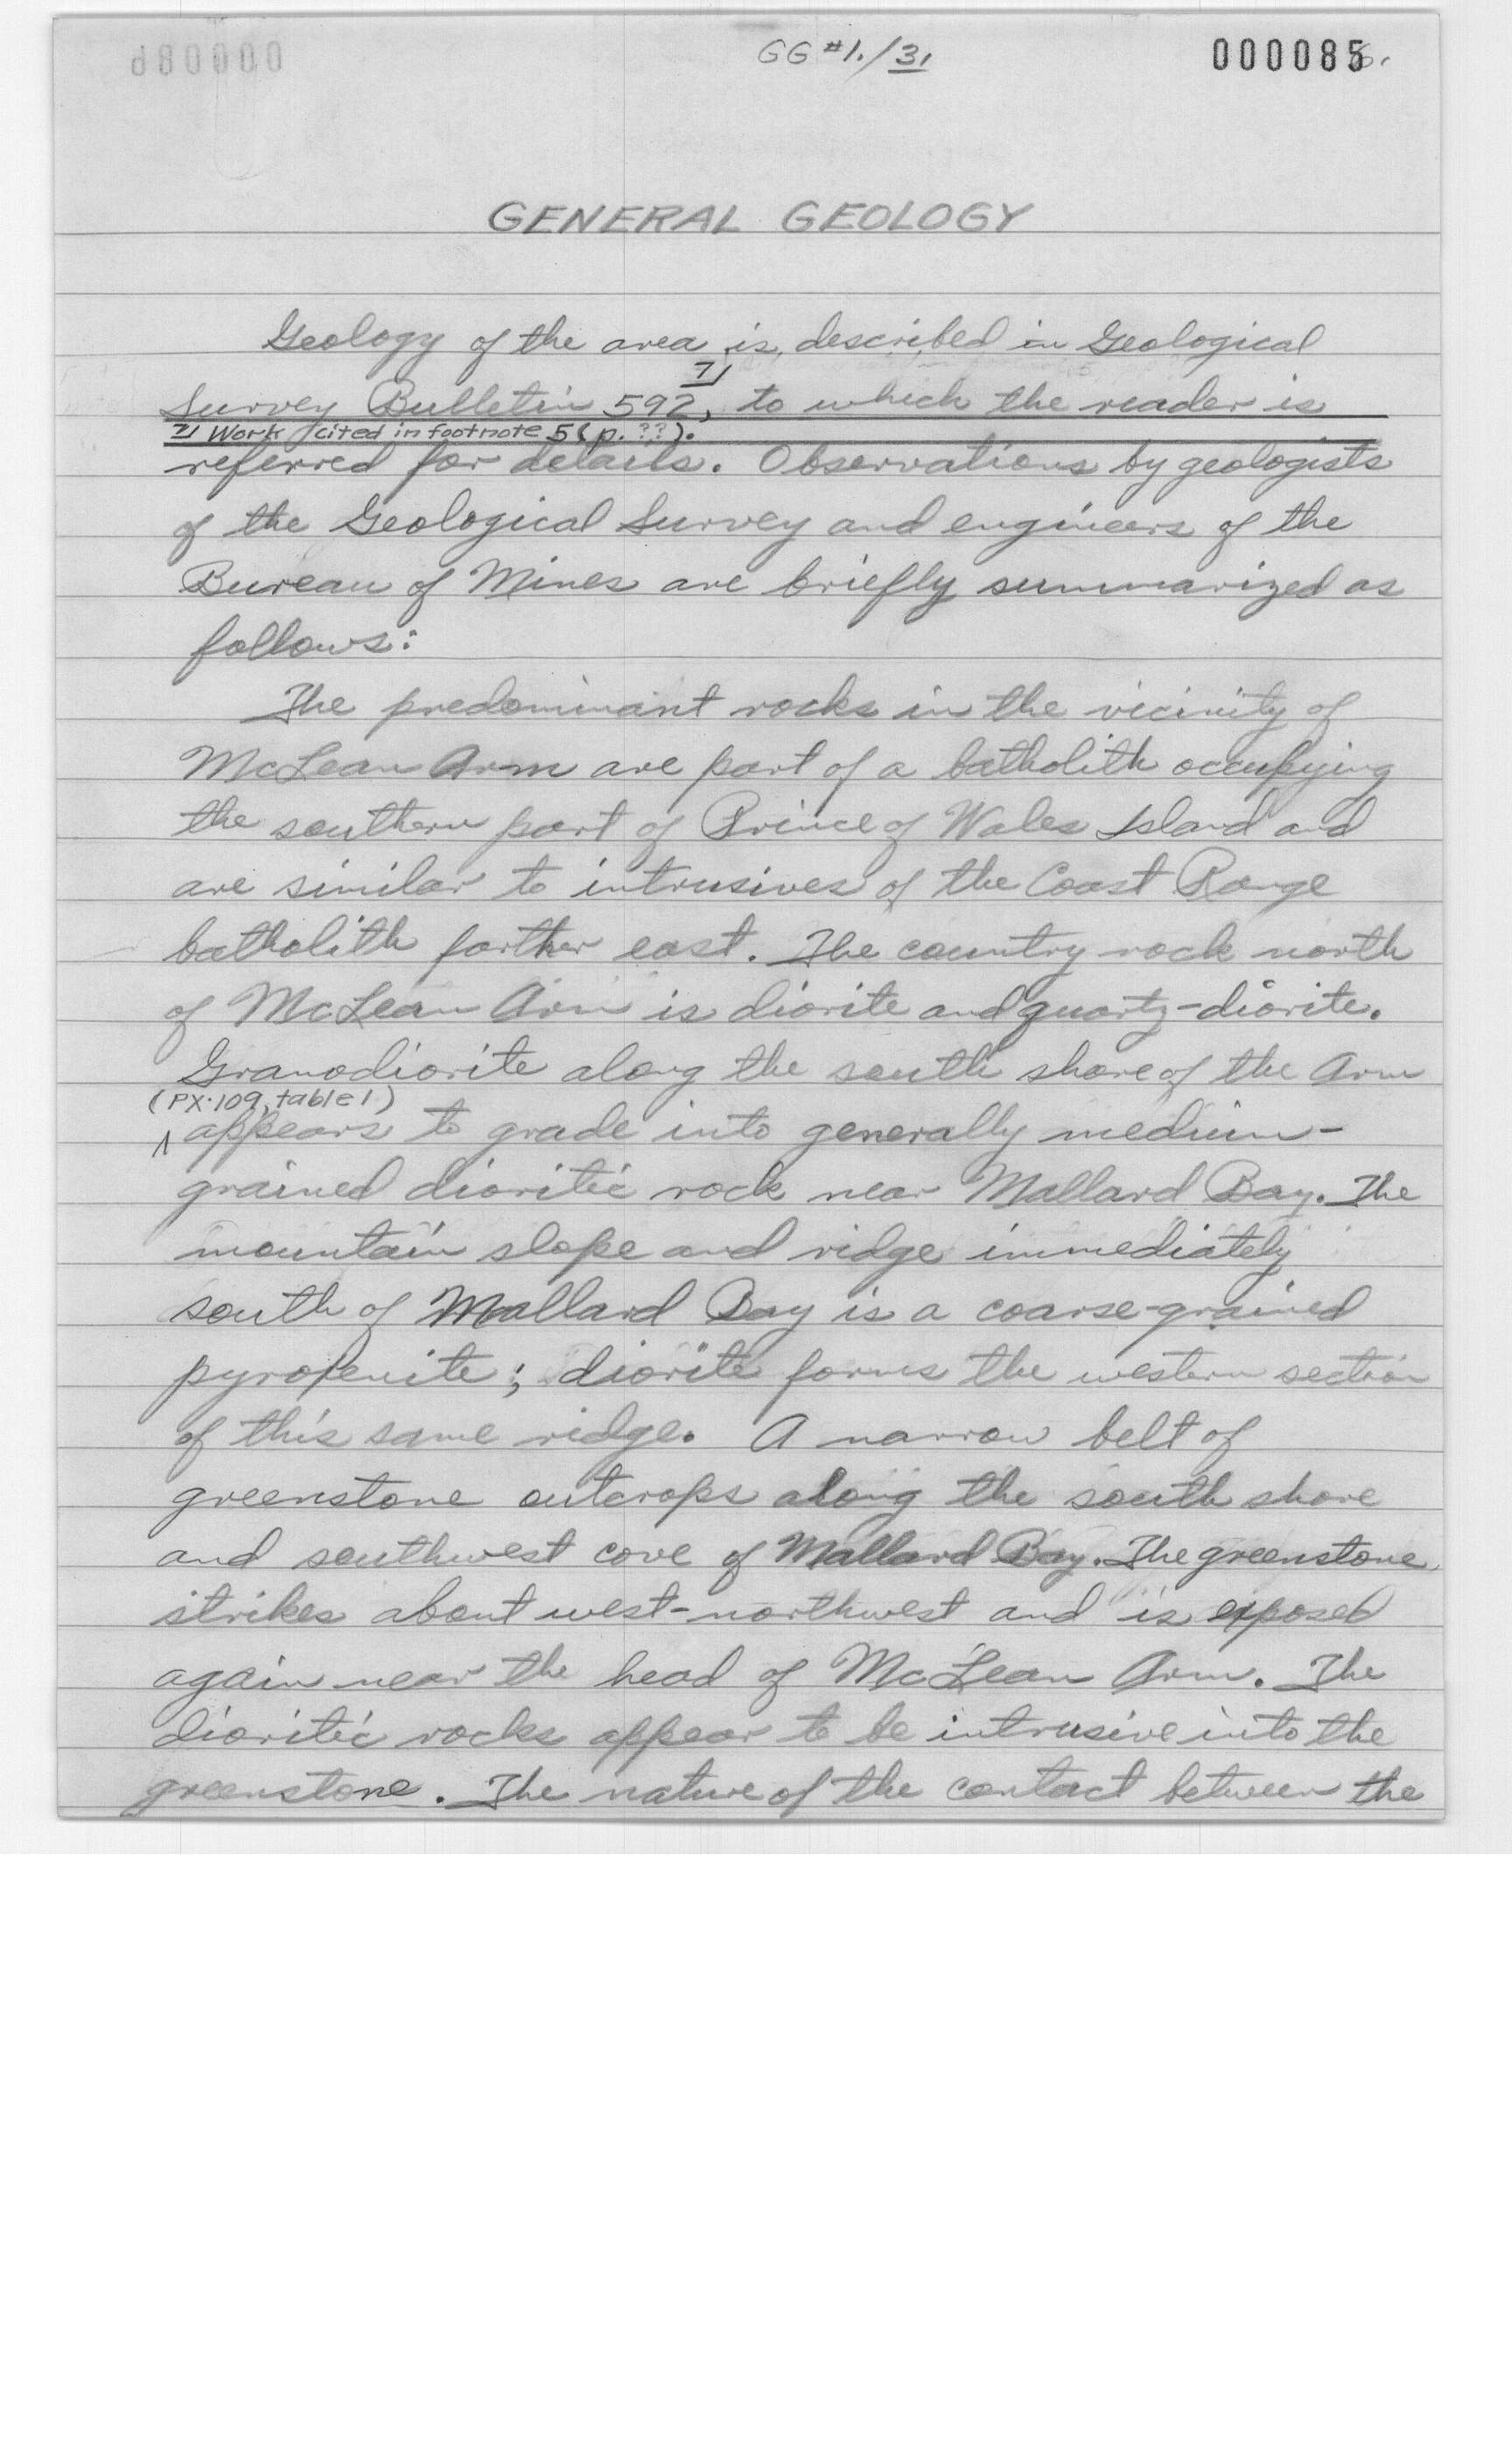 GG #1./31
000085
GENERAL GEOLOGY
Geology of the area is described in Geological
7/
Survey Bulletin 592, to which the reader is
7/ Work cited in footnote 5 (p. ??).
referred for details. Observations by geologists
of the Geological Survey and engineers of the
Bureau of Mines are briefly summarized as
follows:
The predominant rocks in the vicinity of
McLean Arm are part of a batholith occupying
the southern part of Prince of Wales Island and
are similar to intrusives of the Coast Range
batholith farther east. The country rock north
of McLean Arm is diorite and quartz-diorite.
Granodiorite along the south shore of the Arm
(PX-109, table 1)
appears to grade into generally medium-
grained dioritic rock near Mallard Bay. The
mountain slope and ridge immediately
south of Mallard Bay is a coarse-grained
pyroxenite; diorite forms the western section
of this same ridge. A narrow belt of
greenstone outcrops along the south shore
and southwest cove of Mallard Bay. The greenstone
strikes about west-northwest and is exposed
again near the head of McLean Arm. The
dioritic rocks appear to be intrusive into the
greenstone. The nature of the contact between the